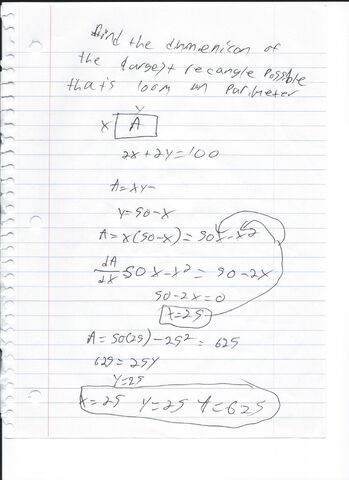 find the dimenison of
the largest recangle possible
that is 100m in parimeter
Y
X A
2x+2y=100
A=xy
y=50-x
A=x(50-x)=50x-x²
dA/dx 50x-x²=50-2x
50-2x=0
x=25
A=50(25)-25²=625
625=25y
y=25
x=25 y=25 A=625